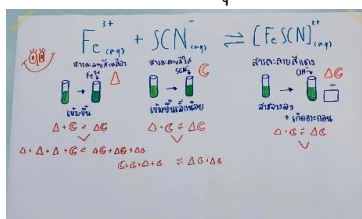 Fe³⁺(aq) + SCN⁻(aq) ⇌ [FeSCN]²⁺(aq)
สารละลายสีเหลือง
Fe³⁺
Δ
เข้มขึ้น
สารละลายใส
SCN⁻
C
เข้มขึ้นเล็กน้อย
สารละลายสีแดง
OH⁻
ΔC
สีจางลง
+ เกิดตะกอน
Δ + C ⇌ ΔC
Δ + C ⇌ ΔC
Δ + C ⇌ ΔC